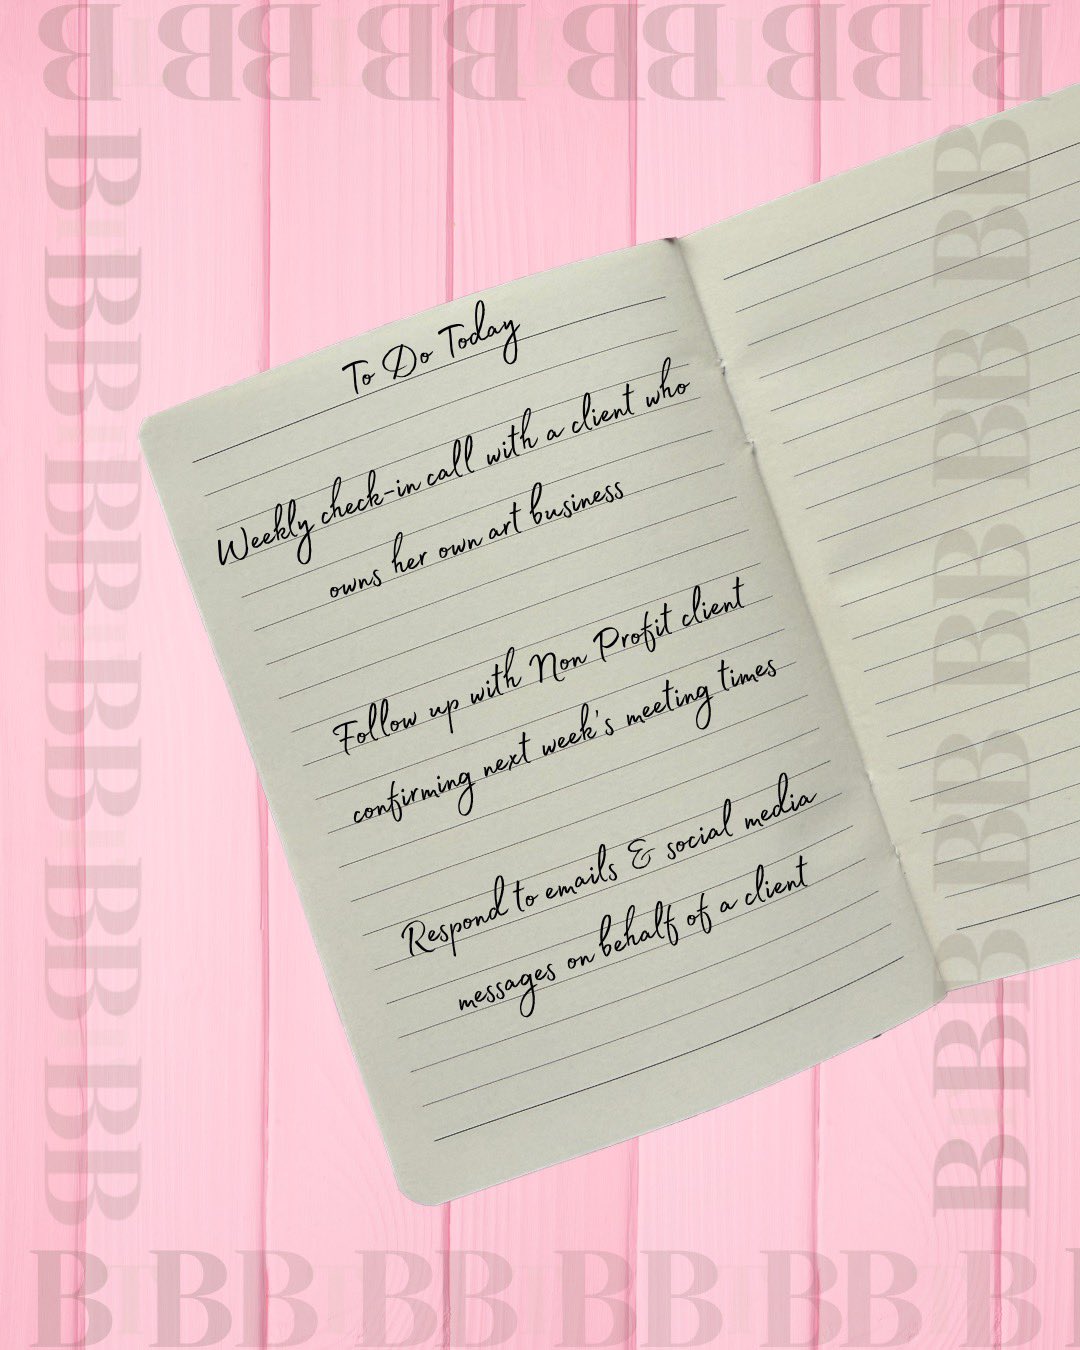 To Do Today
Weekly check-in call with a client who
owns her own art business
Follow up with Non Profit client
confirming next week's meeting times
Respond to emails & social media
messages on behalf of a client